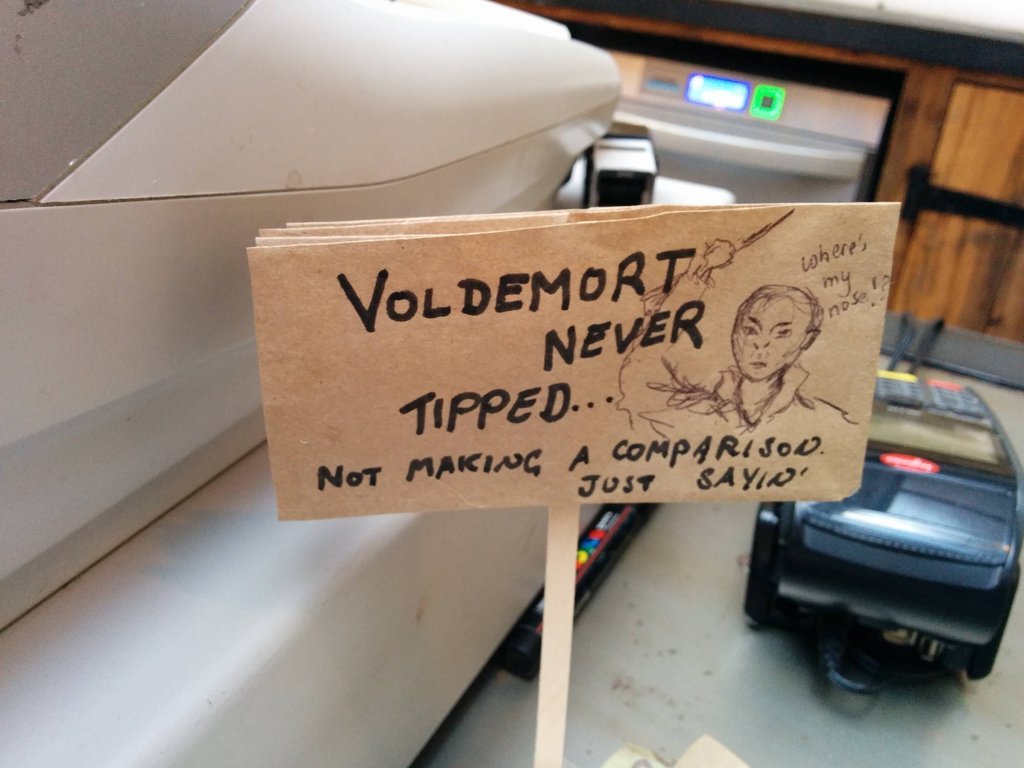 VOLDEMORT
NEVER
TIPPED...
NOT MAKING A COMPARISON.
JUST SAYIN'
where's
my
nose!?